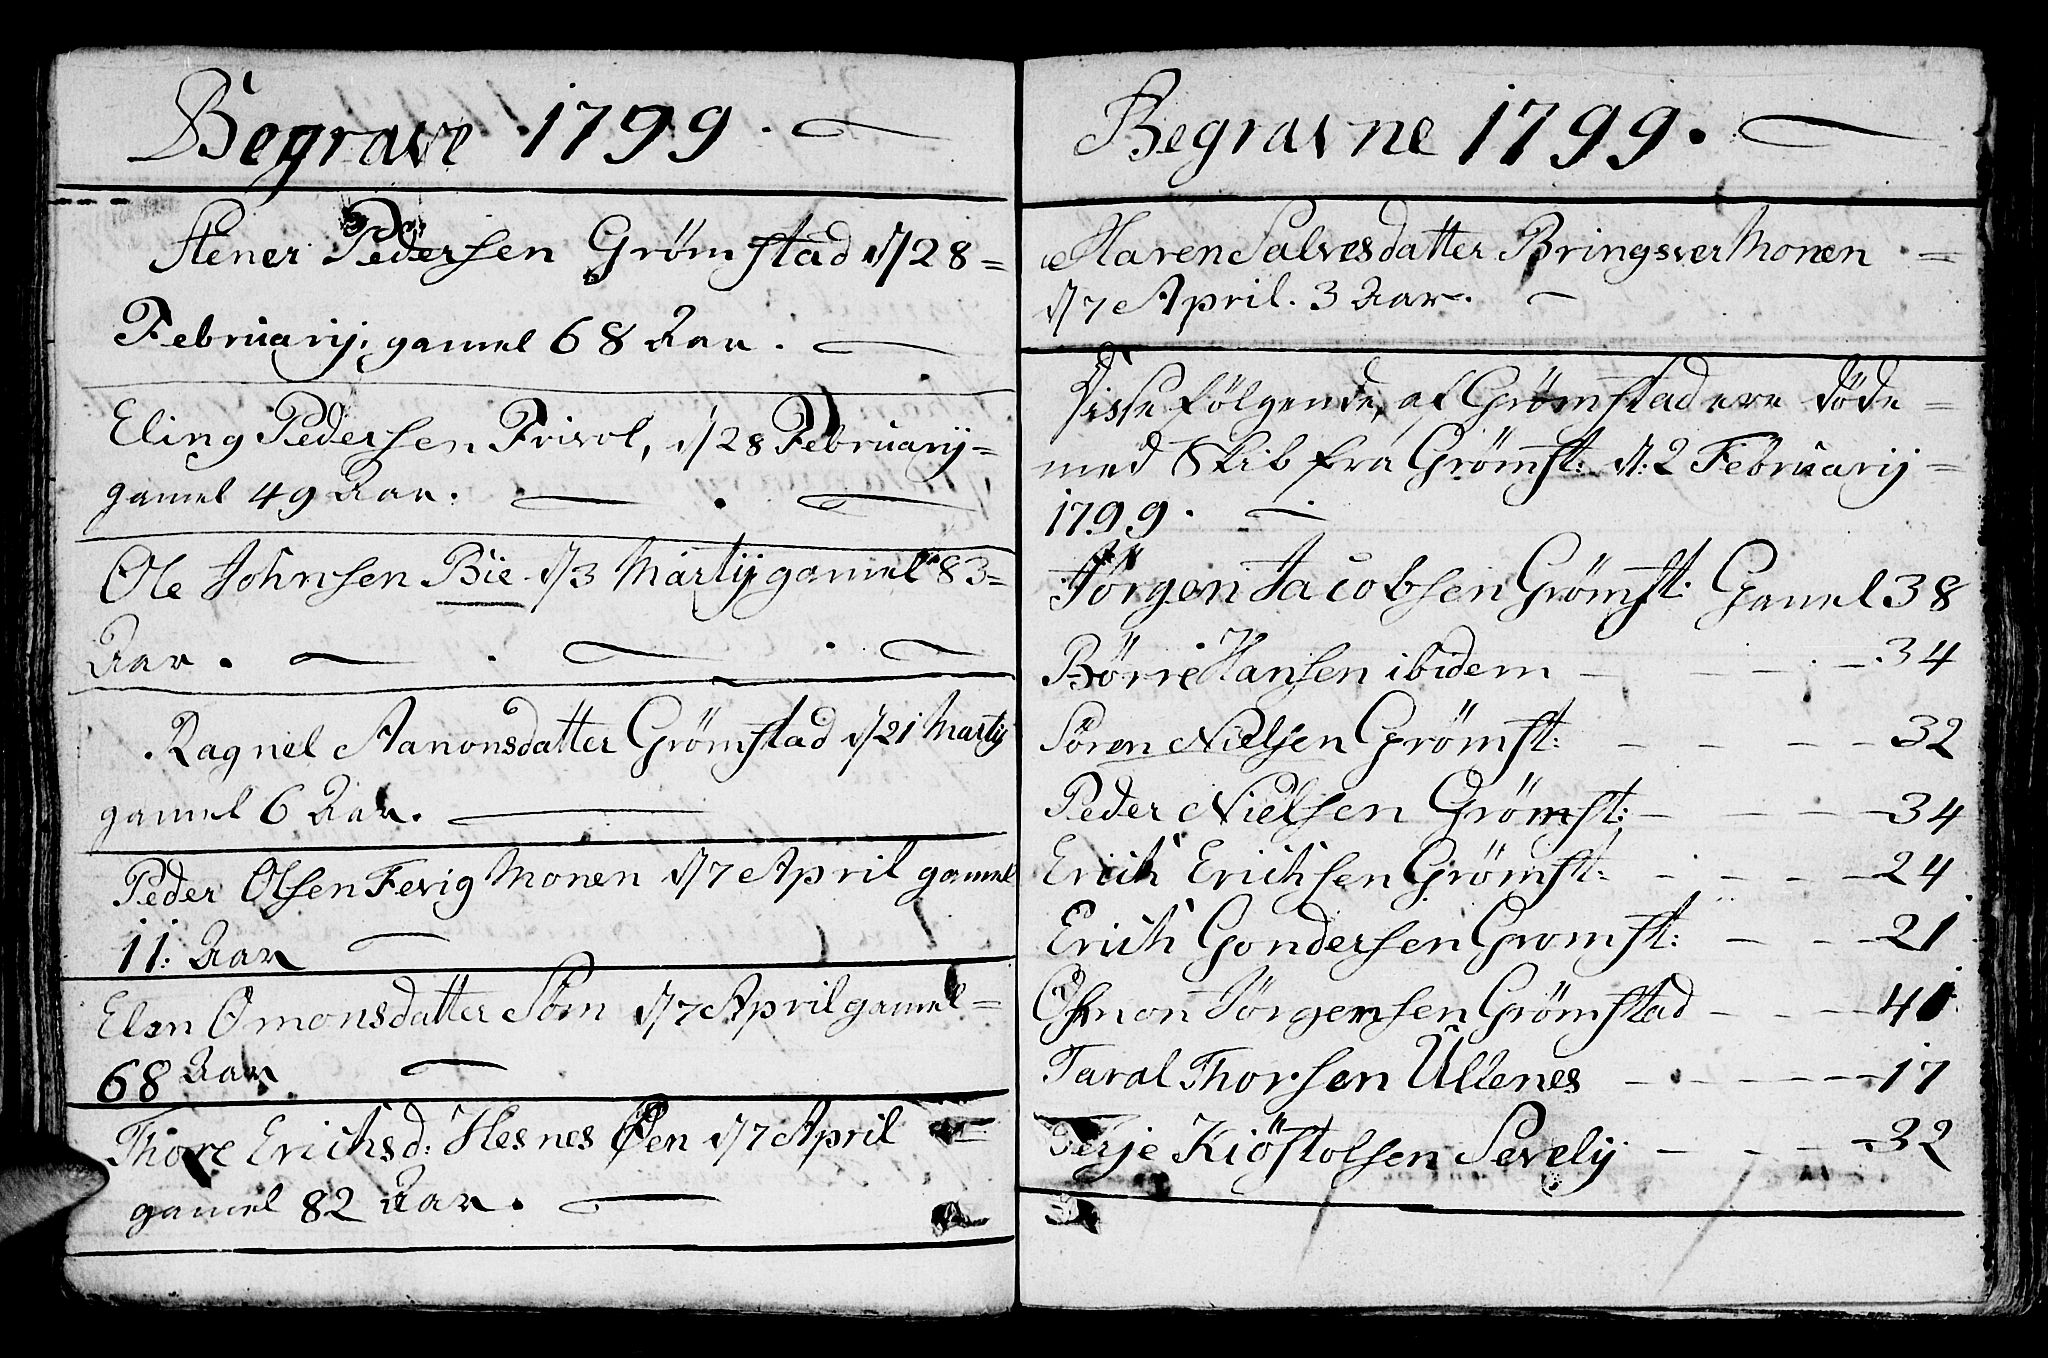 Begrave 1799.
Stener Pedersen Grömstad d/28=
Februarij, gamel 68 Aar.
Eling Pedersen Frivol, d/28 Februarij=
gamel 49 Aar.
Ole Johnsen Bie d/3 Martij gamel 83=
Aar.
Ragnel Aanonsdatter Grömstad d/21 Martij
gamel 6 Aar.
Peder Olsen Fevig Monen d/7 April gamel
11: Aar
Elen Omonsdatter Söm d/7 April gamel=
68 Aar
Thore Erichsd: Hesnes Öen d/7 April =
gamel 82 Aar.
Begravne 1799.
Maren Salvesdatter Bringsver Monen =
d/7 April. 3 Aar.
Disse fölgende, af Grömstad ere döde=
med Skib fra Grömst: d: 2 Februarij=
1799.
Jörgen Jacobsen Grömst: Gamel 38
Börre Hansen ibidem - - - 34
Sören Nielsen Grömst: - - - - 32
Peder Nielsen Grömst: - - - - 34
Erich Erichsen Grömst: - - - - 24
Erich Gondersen Gromst: - - - 21
Osmon Jörgensen Grömstad - - - 41
Taral Thorsen Ullenes - - - - - 17
Terje Kiöstolsen Sevelij - - - 32